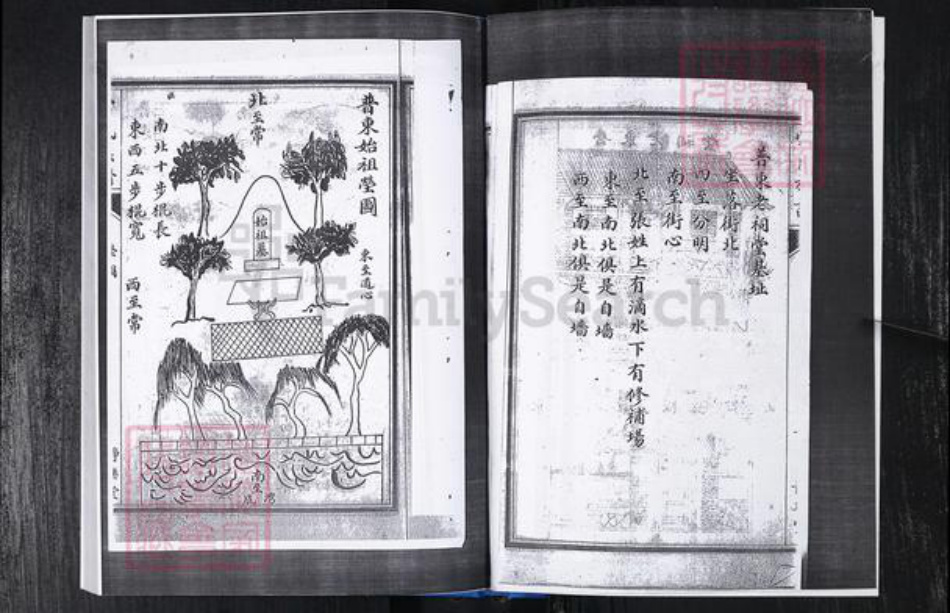 普東老祠堂基址
坐落街北
四至分明
南至街心
北至張姓上有滴水下有修補場
東至南北俱是自墻
西至南北俱是自墻
普東始祖塋圖
東至道心
北至常
始祖墓
南北十步棍長
東西五步棍寬
西至常
南至灣
FamilySearch